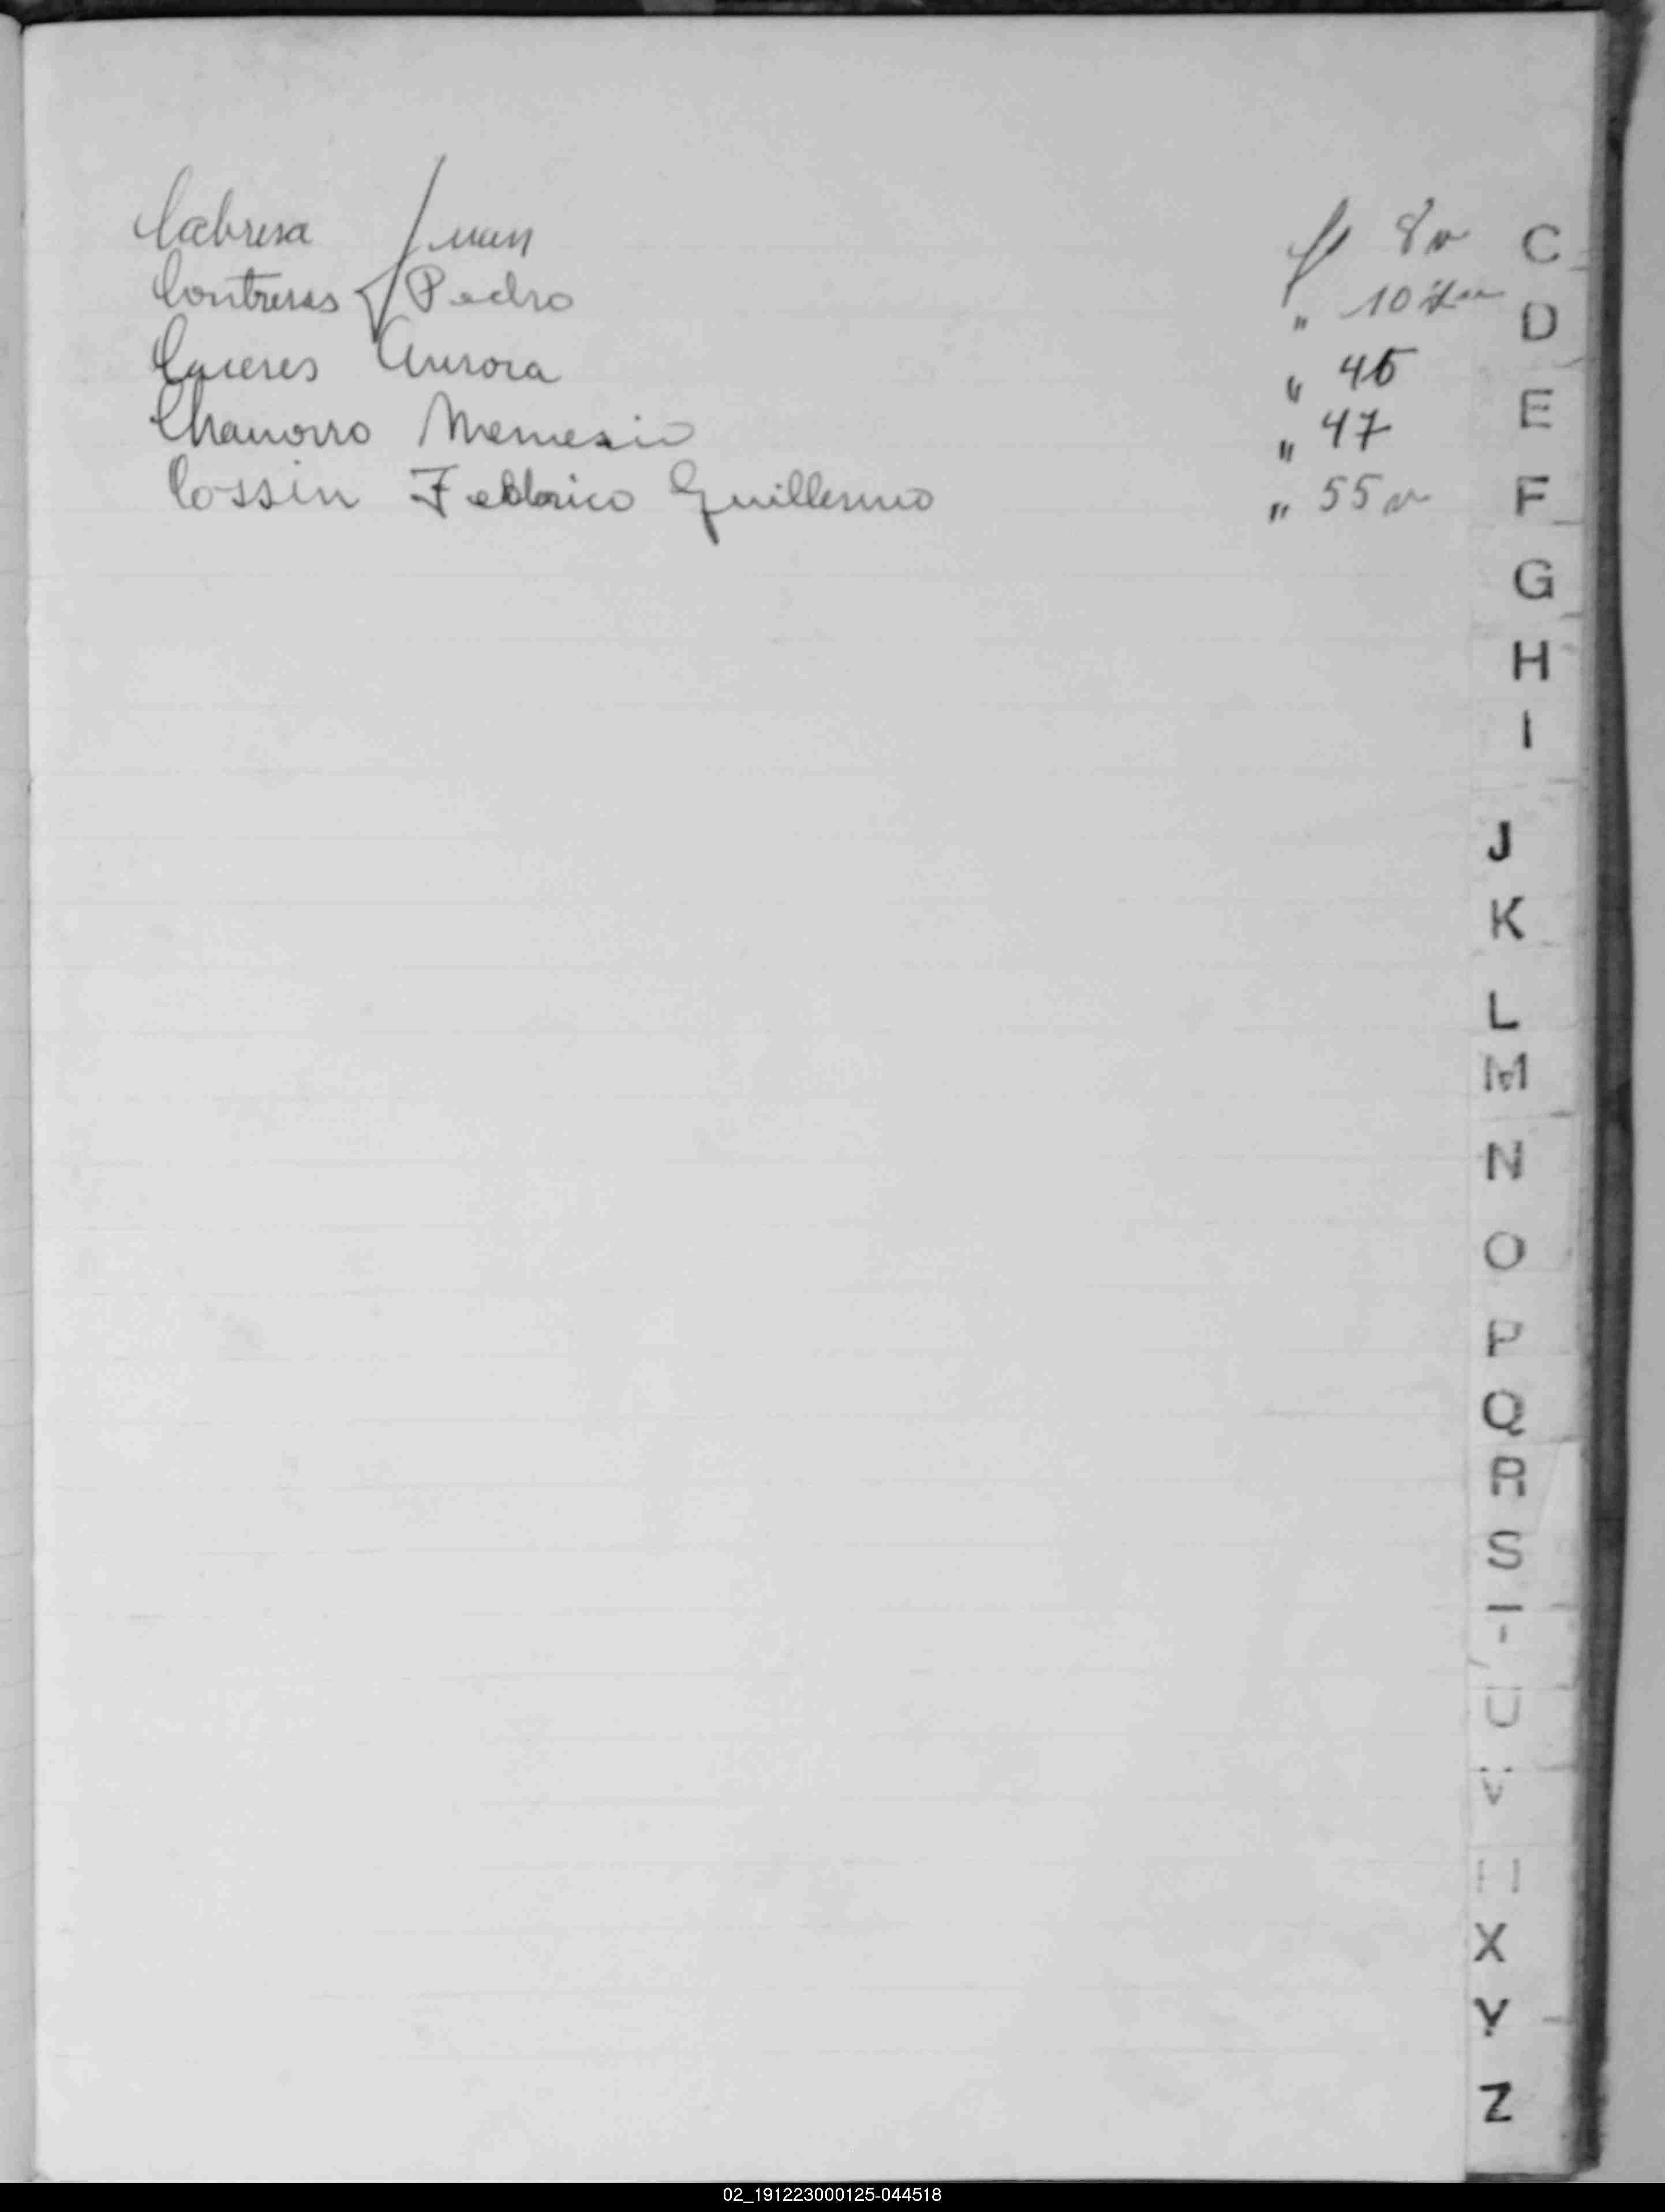 Cabrera Juan f 8 v
Contreras Pedro " 10
Caceres Aurora " 45
Chamorro Nemesio " 47
Cossin Federico Guillermo " 55 v
C
D
E
F
G
H
I
J
K
L
M
N
O
P
Q
R
S
T
U
V
X
Y
Z
02_191223000125-044518